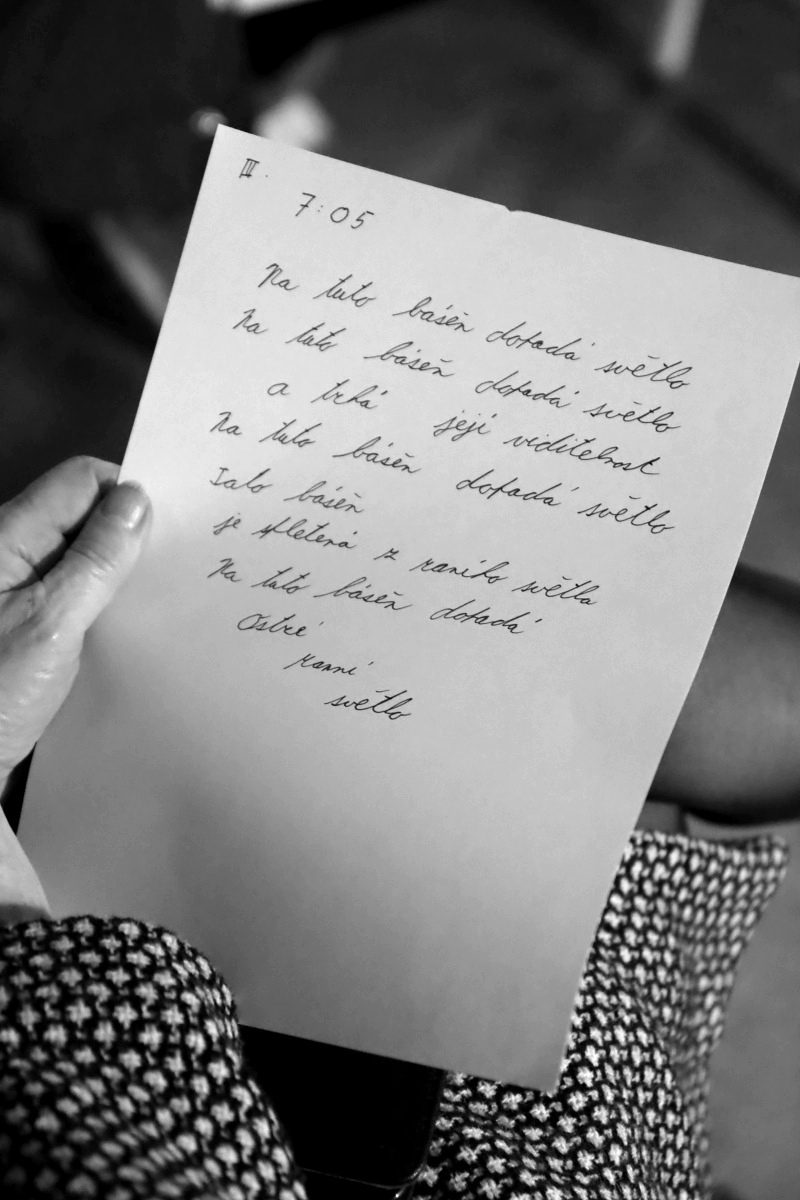 III.
7:05
Na tuto báseň dopadá světlo
Na tuto báseň dopadá světlo
a trhá její viditelnost
Na tuto báseň dopadá světlo
Tato báseň
je spletená z raního světla
Na tuto báseň dopadá
Ostré
ranní
světlo